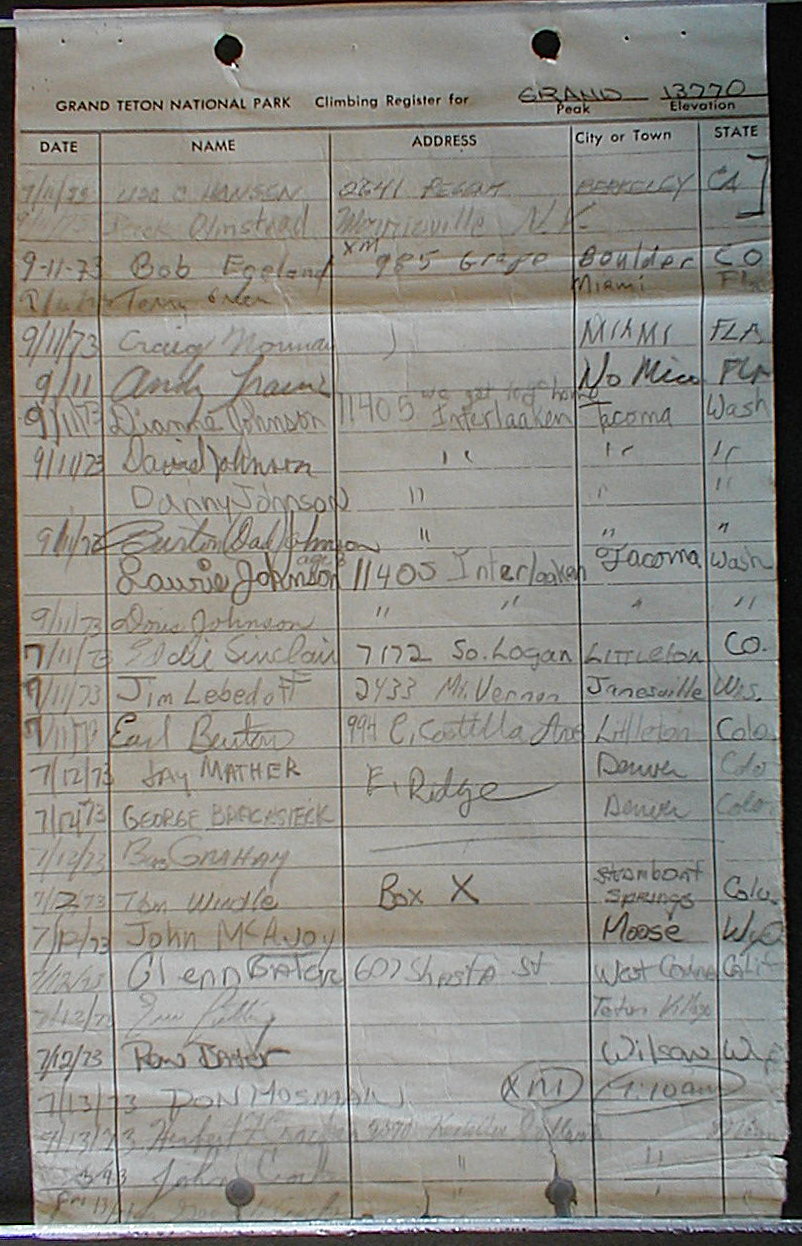 GRAND TETON NATIONAL PARK Climbing Register for GRAND 13770
Peak Elevation
DATE NAME ADDRESS City or Town STATE
C HANSEN 2641 REGENT BERKELEY CA
Olmstead N.Y.
XM
9-11-73 Bob Egeland 985 Grape Boulder CO
Miami Fla
9/11/73 Craig Norman MIAMI FLA
9/11 Andy No Mia FLA
we get
9/11/73 Dianna Johnson 11405 Interlaaken Tacoma Wash
9/11/73 David Johnson " " "
Danny Johnson " " "
9/11/73 Burton (Dad) Johnson " " "
age 8
Laurie Johnson 11405 Interlaaken Tacoma Wash
9/11/73 Doris Johnson " " " "
7/11/73 Eddie Sinclair 7172 So. Logan LITTLETON CO.
7/11/73 Jim Lebedoff 2433 Mt. Vernon Janesville Wis.
7/11/73 Earl Benton 994 E. Costilla Ave Littleton Colo.
7/12/73 JAY MATHER E. Ridge Denver Colo
7/12/73 GEORGE Denver Colo
7/12/73 GRAHAM
7/12/73 Tom Windle Box X Steamboat Springs Colo.
7/12/73 John McAvoy Moose Wyo
7/12/73 Glenn 607 Shasta St West Covina Calif
7/12/73 Teton Village
7/12/73 Ron Wilson Wy
7/13/73 DON MOSMAN XM 7:10am
7/13/73 Herbert
John " " "